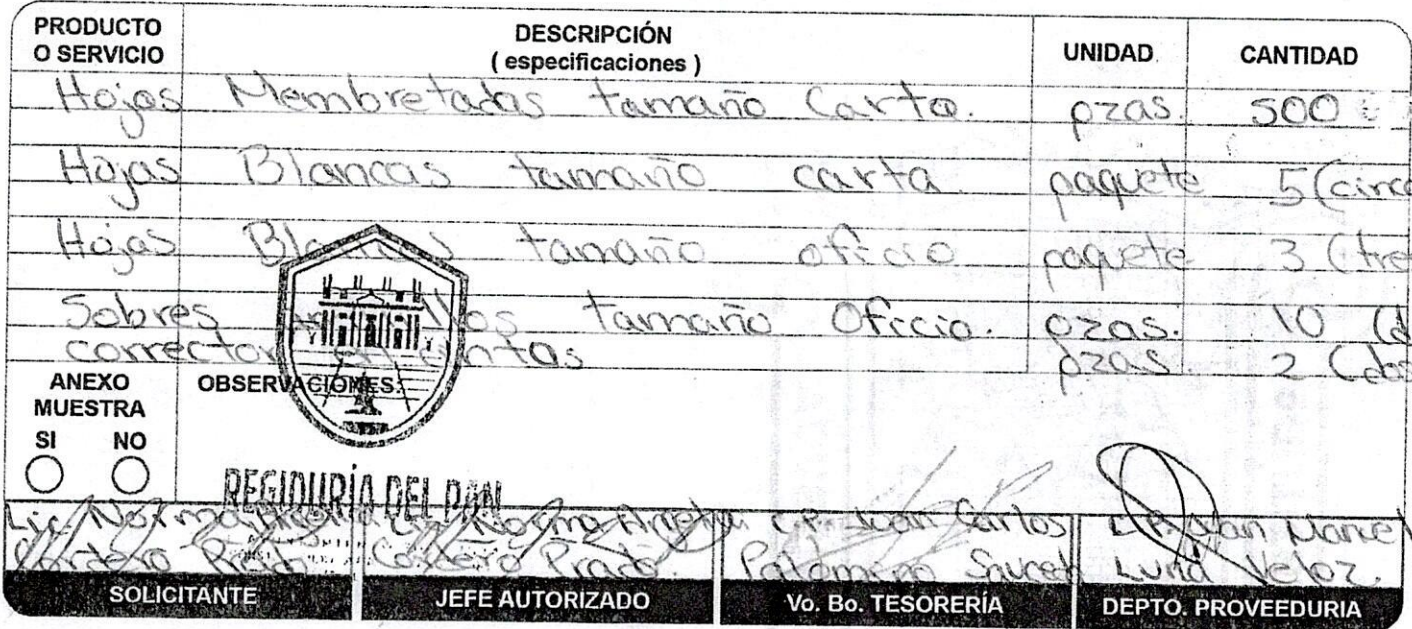 PRODUCTO O SERVICIO DESCRIPCIÓN ( especificaciones ) UNIDAD. CANTIDAD
Hojas Membretadas tamaño Carta. pzas. 500
Hojas Blancas tamaño carta paquete 5 (cinco
Hojas Blancas tamaño oficio paquete 3 (tre
Sobres tamaño Oficio. pzas. 10 (d
corrector en cintas pzas 2 (dos
ANEXO MUESTRA
SI NO
OBSERVACIONES:
REGIDURÍA DEL PAN
Lic. Norma Cordero Prado Lic. Norma Cordero Prado. C.P. Juan Carlos Palomino Sauced C.P. Juan Manuel Luna Veloz.
SOLICITANTE JEFE AUTORIZADO Vo. Bo. TESORERÍA DEPTO. PROVEEDURIA